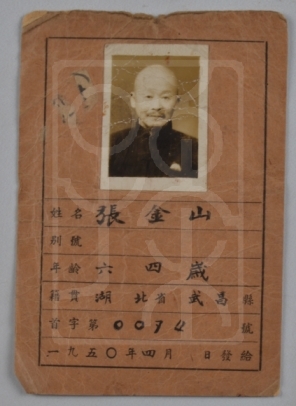 姓名 張金山
別號
年齡 六四歲
籍貫 湖北省武昌縣
首字第0074號
一九五〇年四月 日發給